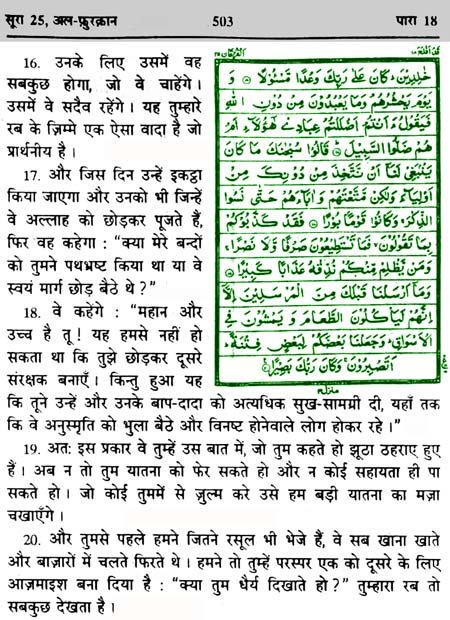 सूरा 25, अल-फ़ुरक़ान 503 पारा 18
16. उनके लिए उसमें वह
सबकुछ होगा, जो वे चाहेंगे।
उसमें वे सदैव रहेंगे। यह तुम्हारे
रब के ज़िम्मे एक ऐसा वादा है जो
प्रार्थनीय है।
17. और जिस दिन उन्हें इकट्ठा
किया जाएगा और उनको भी जिन्हें
वे अल्लाह को छोड़कर पूजते हैं,
फिर वह कहेगा : “क्या मेरे बन्दों
को तुमने पथभ्रष्ट किया था या वे
स्वयं मार्ग छोड़ बैठे थे?”
18. वे कहेंगे : “महान और
उच्च है तू! यह हमसे नहीं हो
सकता था कि तुझे छोड़कर दूसरे
संरक्षक बनाएँ। किन्तु हुआ यह
कि तूने उन्हें और उनके बाप-दादा को अत्यधिक सुख-सामग्री दी, यहाँ तक
कि वे अनुस्मृति को भुला बैठे और विनष्ट होनेवाले लोग होकर रहे।”
19. अतः इस प्रकार वे तुम्हें उस बात में, जो तुम कहते हो झूठा ठहराए हुए
हैं। अब न तो तुम यातना को फेर सकते हो और न कोई सहायता ही पा
सकते हो। जो कोई तुममें से ज़ुल्म करे उसे हम बड़ी यातना का मज़ा
चखाएँगे।
20. और तुमसे पहले हमने जितने रसूल भी भेजे हैं, वे सब खाना खाते
और बाज़ारों में चलते फिरते थे। हमने तो तुम्हें परस्पर एक को दूसरे के लिए
आज़माइश बना दिया है : “क्या तुम धैर्य दिखाते हो?” तुम्हारा रब तो
सबकुछ देखता है।
خٰلِدِيْنَ ۭ كَانَ عَلٰى رَبِّكَ وَعْدًا مَّسْـُٔوْلًا
وَيَوْمَ يَحْشُرُهُمْ وَمَا يَعْبُدُوْنَ مِنْ دُوْنِ اللّٰهِ
فَيَقُوْلُ ءَاَنْتُمْ اَضْلَلْتُمْ عِبَادِيْ هٰٓؤُلَاۗءِ اَمْ
هُمْ ضَلُّوا السَّبِيْلَ قَالُوْا سُبْحٰنَكَ مَا كَانَ
يَنْۢبَغِيْ لَنَآ اَنْ نَّتَّخِذَ مِنْ دُوْنِكَ مِنْ
اَوْلِيَاۗءَ وَلٰكِنْ مَّتَّعْتَهُمْ وَاٰبَاۗءَهُمْ حَتّٰي نَسُوا
الذِّكْرَ ۚ وَكَانُوْا قَوْمًۢا بُوْرًا فَقَدْ كَذَّبُوْكُمْ
بِمَا تَقُوْلُوْنَ ۙ فَمَا تَسْتَطِيْعُوْنَ صَرْفًا وَّلَا نَصْرًا ۚ
وَمَنْ يَّظْلِمْ مِّنْكُمْ نُذِقْهُ عَذَابًا كَبِيْرًا
وَمَآ اَرْسَلْنَا قَبْلَكَ مِنَ الْمُرْسَلِيْنَ اِلَّآ
اِنَّهُمْ لَيَاْكُلُوْنَ الطَّعَامَ وَيَمْشُوْنَ فِي
الْاَسْوَاقِ ۭ وَجَعَلْنَا بَعْضَكُمْ لِبَعْضٍ فِتْنَةً ۭ
اَتَصْبِرُوْنَ ۚ وَكَانَ رَبُّكَ بَصِيْرًا